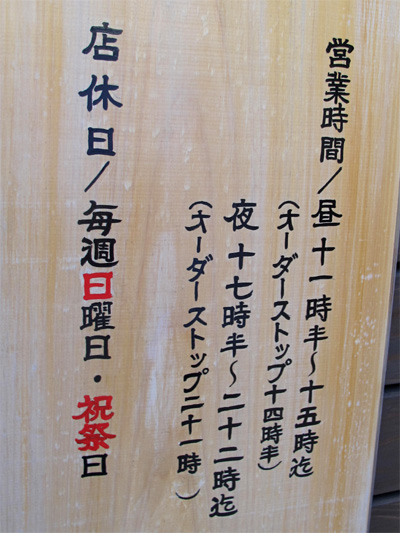 営業時間／昼十一時半～十五時迄
（オーダーストップ十四時半）
夜十七時半～二十二時迄
（オーダーストップ二十一時）
店休日／毎週日曜日・祝祭日